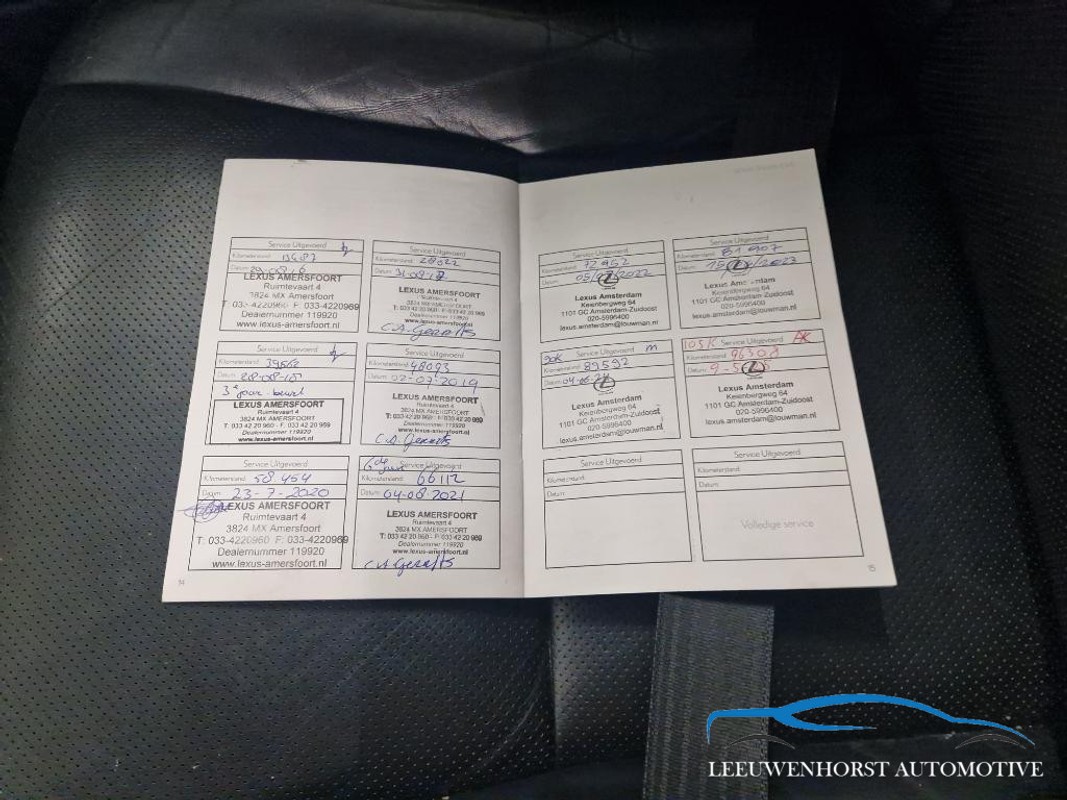 Service Uitgevoerd
Kilometerstand
Datum
LEXUS AMERSFOORT
Ruimtevaart 4
3824 MX Amersfoort
T: 033-4220960 F: 033-4220969
Dealernummer 119920
www.lexus-amersfoort.nl
Service Uitgevoerd
Kilometerstand
Datum 31-08-17
LEXUS AMERSFOORT
Ruimtevaart 4
3824 MX AMERSFOORT
T: 033 42 20 960 - F: 033 42 20 969
Dealernummer 119920
www.lexus-amersfoort.nl
C.A. Geralts
Service Uitgevoerd
Kilometerstand 39562
Datum 28-08-18
3e jaar beurt
LEXUS AMERSFOORT
Ruimtevaart 4
3824 MX AMERSFOORT
T: 033 42 20 960 - F: 033 42 20 969
Dealernummer 119920
www.lexus-amersfoort.nl
Service Uitgevoerd
Kilometerstand 48093
Datum 02-07-2019
LEXUS AMERSFOORT
Ruimtevaart 4
3824 MX AMERSFOORT
T: 033 42 20 960 - F: 033 42 20 969
Dealernummer 119920
www.lexus-amersfoort.nl
C.A. Geralts
Service Uitgevoerd
Kilometerstand 58 454
Datum 23-7-2020
LEXUS AMERSFOORT
Ruimtevaart 4
3824 MX Amersfoort
T: 033-4220960 F: 033-4220969
Dealernummer 119920
www.lexus-amersfoort.nl
6de jaar Service Uitgevoerd
Kilometerstand 66112
Datum 04-08-2021
LEXUS AMERSFOORT
Ruimtevaart 4
3824 MX AMERSFOORT
T: 033 42 20 960 - F: 033 42 20 969
Dealernummer 119920
www.lexus-amersfoort.nl
C.A. Geralts
14
Service Uitgevoerd
Kilometerstand
Datum
Lexus Amsterdam
Keienbergweg 64
1101 GC Amsterdam-Zuidoost
020-5996400
lexus.amsterdam@louwman.nl
Service Uitgevoerd
Kilometerstand 81 907
Datum
Lexus Amsterdam
Keienbergweg 64
1101 GC Amsterdam-Zuidoost
020-5996400
lexus.amsterdam@louwman.nl
90K Service Uitgevoerd m
Kilometerstand 89592
Datum
Lexus Amsterdam
Keienbergweg 64
1101 GC Amsterdam-Zuidoost
020-5996400
lexus.amsterdam@louwman.nl
105K Service Uitgevoerd AK
Kilometerstand 96308
Datum
Lexus Amsterdam
Keienbergweg 64
1101 GC Amsterdam-Zuidoost
020-5996400
lexus.amsterdam@louwman.nl
Service Uitgevoerd
Kilometerstand:
Datum:
Service Uitgevoerd
Kilometerstand:
Datum:
Volledige service
15
LEEUWENHORST AUTOMOTIVE